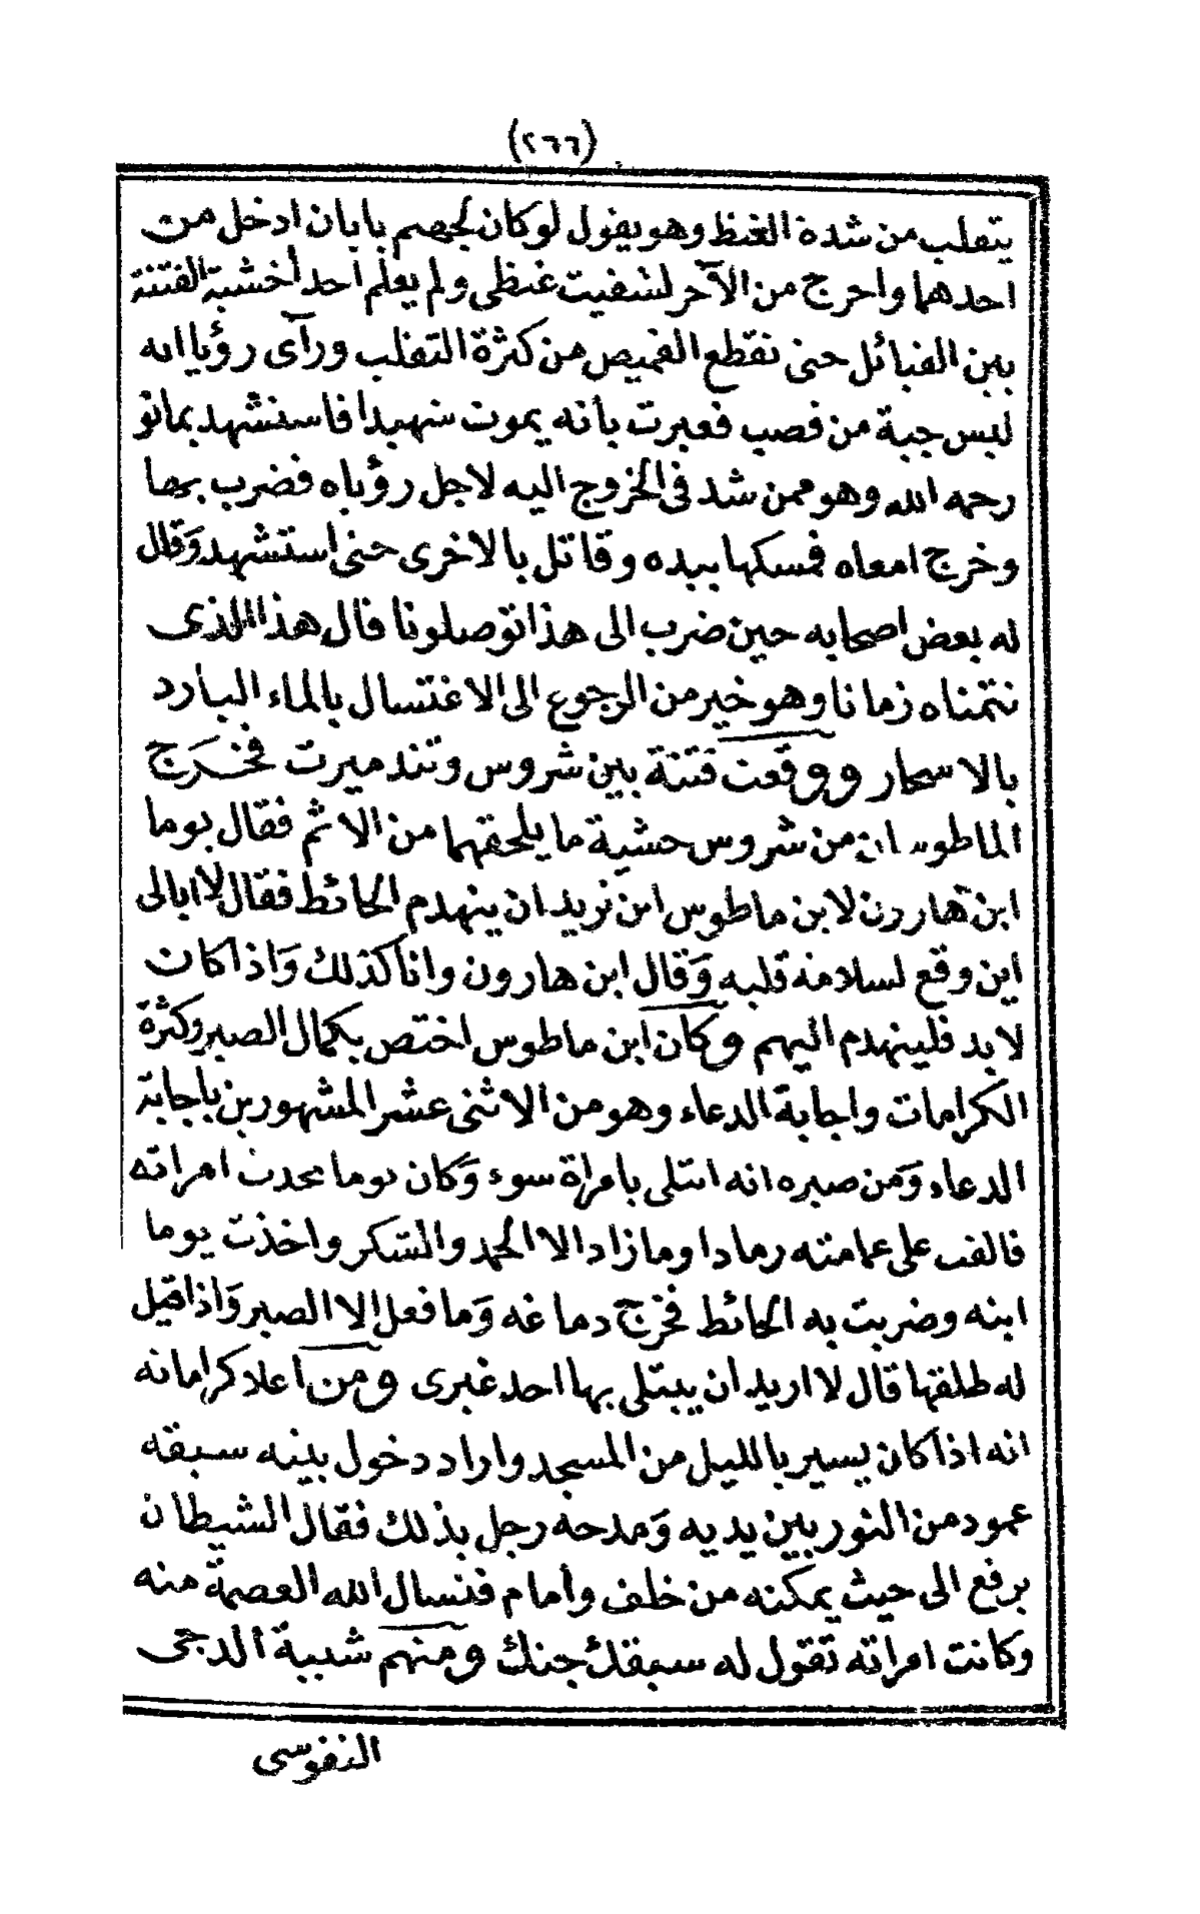 (٢٦٦)
يتقلب من شدة الغيظ وهو يقول لو كان لجهنم بابان ادخل من
احدهما واخرج من الآخر لشفيت غيظى ولم يعلم احد أخشية الفتنة
بين القبائل حتى تقطع القميص من كثرة التقلب ورآى رؤيا انه
لبس جبة من قصب فعبرت بأنه يموت شهيدا فاستشهد بمانو
رحمه الله وهو ممن شد فى الخروج اليه لاجل رؤياه فضرب بها
وخرج امعاه فمسكها بيده وقاتل بالاخرى حتى استشهد وَقال
له بعض اصحابه حين ضرب الى هذا توصلونا قال هذا الذى
نتمناه زمانا وهو خير من الرجوع الى الاغتسال بالماء البارد
بالاسحار ووقعت فتنة بين شروس وتندميرت فخرج
الماطوسان من شروس خشية ما يلحقهما من الاثم فقال يوما
ابن هارون لابن ماطوس اين تريد ان ينهدم الحائط فقال لا ابالى
اين وقع لسلامة قلبه وَقال ابن هارون وانا كذلك وَاذا كان
لا بد فلينهدم اليهم وكان ابن ماطوس اختص بكمال الصبر وكثرة
الكرامات واجابة الدعاء وهو من الاثنى عشر المشهورين باجابة
الدعاء وَمن صبره انه ابتلى بامراة سوء وَكان يوما يحدث امراته
فالقت على عمامته رمادا وما زاد الا الحمد والشكر واخذت يوما
ابنه وضربت به الحائط فخرج دماغه وَما فعل الا الصبر وَاذا قيل
له طلقها قال لا اريد ان يبتلى بها احد غيرى ومن اعلا كراماته
انه اذا كان يسير بالليل من المسجد واراد دخول بيته سبقه
عمود من النور بين يديه وَمدحه رجل بذلك فقال الشيطان
يرفع الى حيث يمكنه من خلف وأمام فنسال الله العصمة منه
وكانت امراته تقول له سبقك جنك ومنهم شيبة الدجى
النفوسى